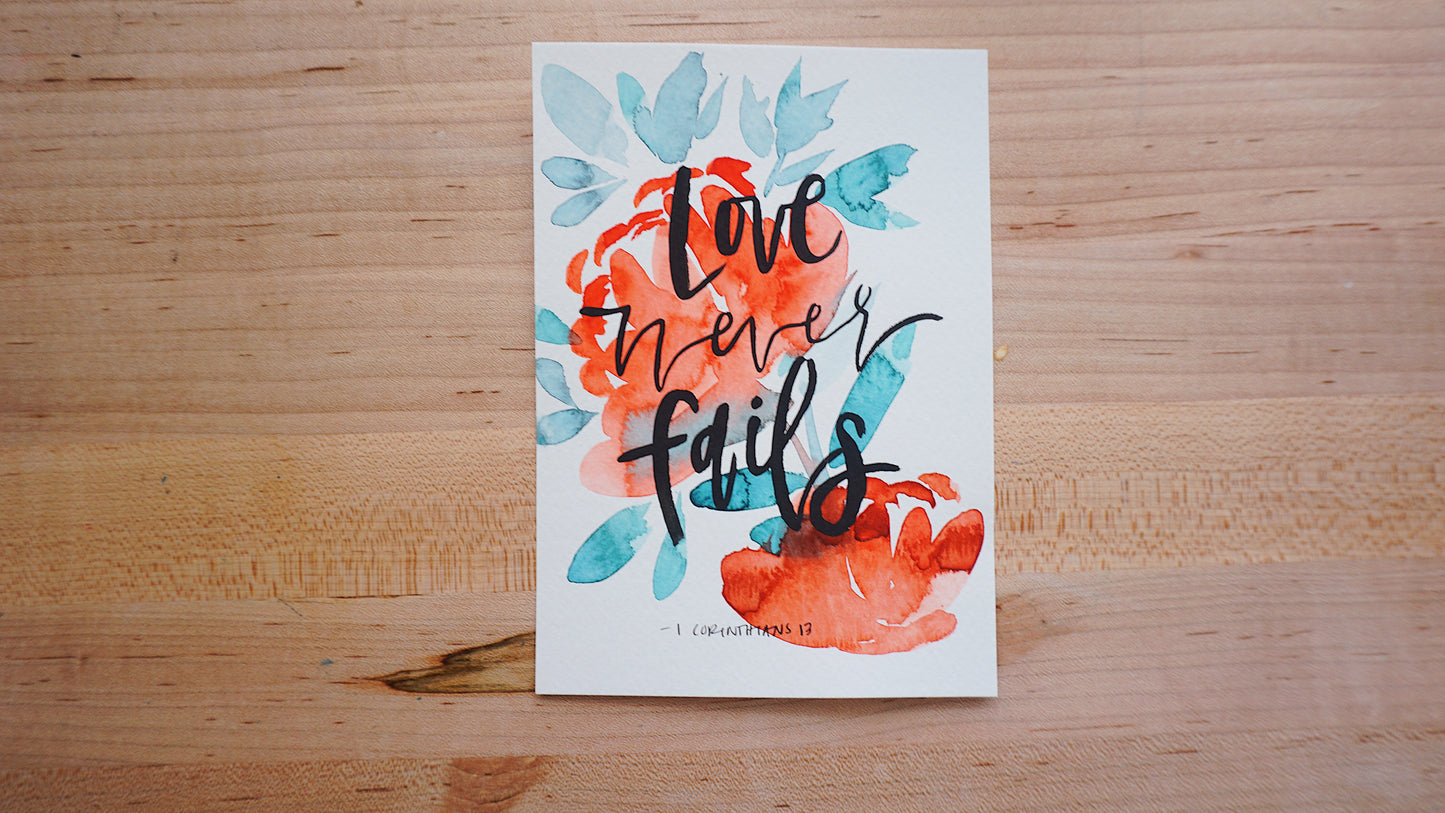 Love
never
fails
-1 CORINTHIANS 13